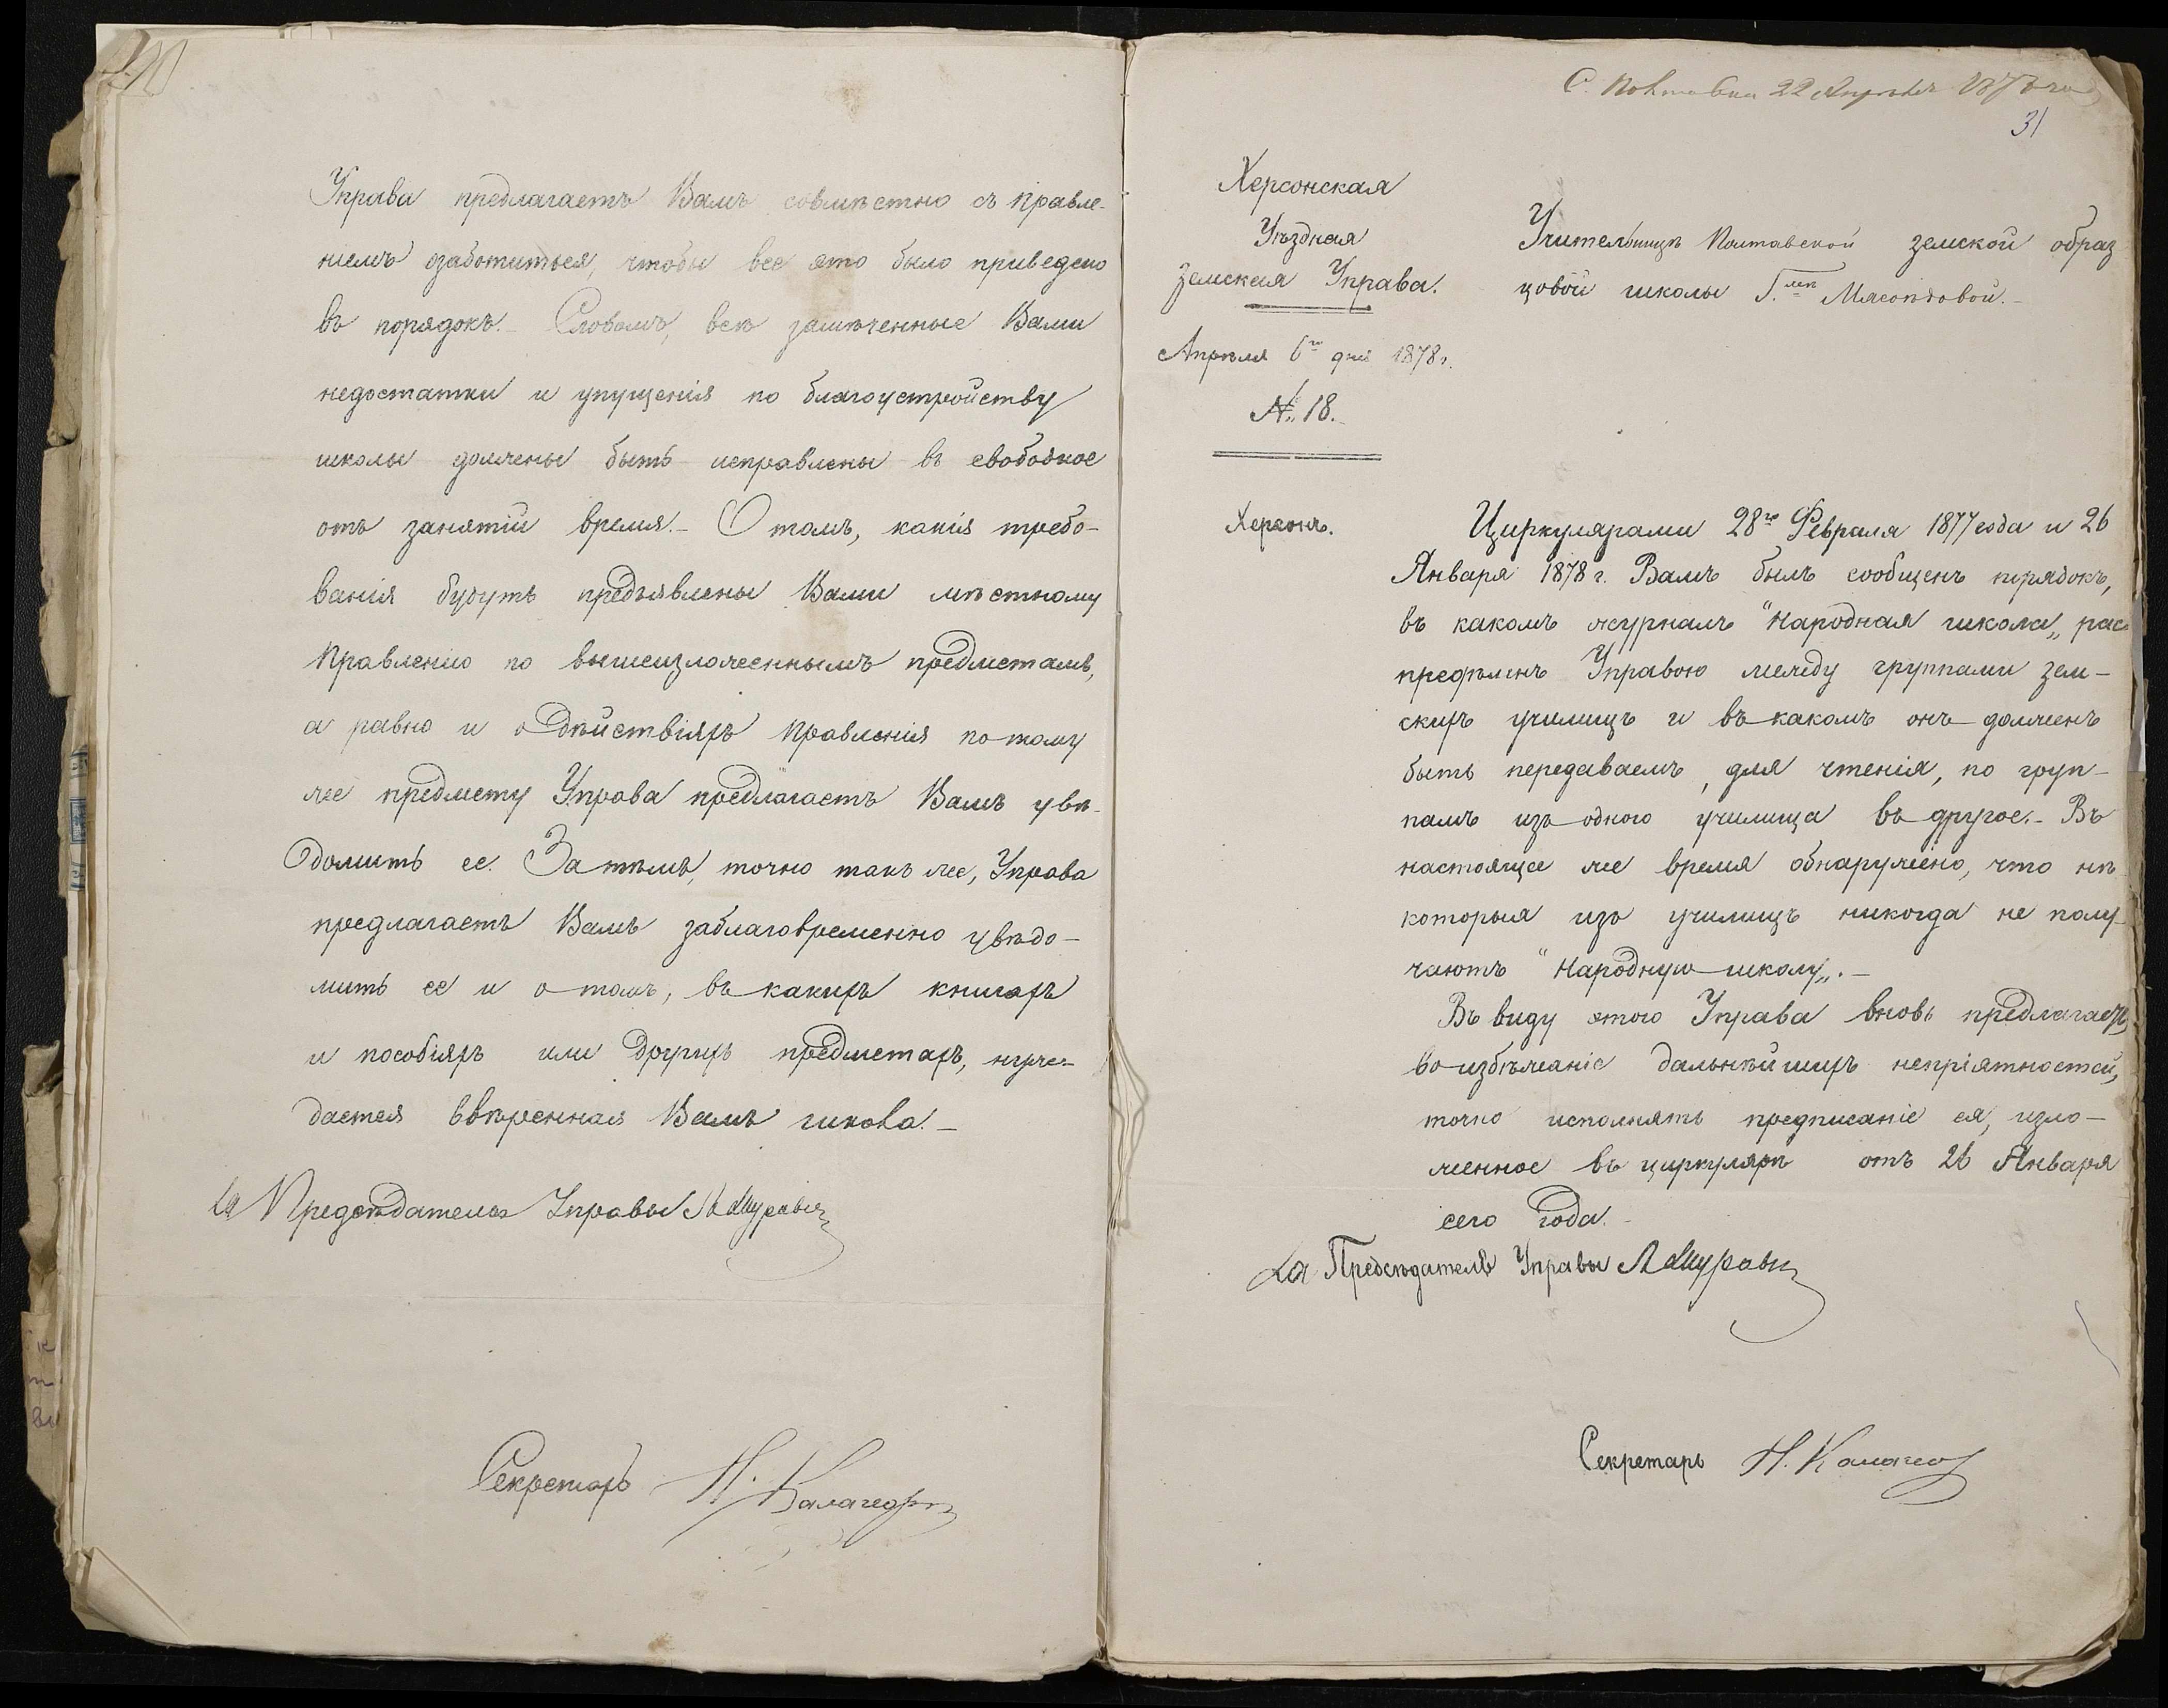 Управа предлагаетъ Вамъ совмѣстно съ Правле-
ніемъ озаботиться, чтобы все это было приведено
въ порядокъ. Словомъ, всѣ замѣченные Вами
недостатки и упущенія по благоустройству
школы должены быть исправлены въ свободное
отъ занятій время. – О томъ, какія требо-
ванія будутъ предъявлены Вами мѣстному
Правленію по вышеизложеннымъ предметамъ,
а равно и о дѣйствіяхъ Правленія по тому
же предмету Управа предлагаетъ Вамъ увѣ-
домить ее. Затѣмъ, точно такъ же, Управа
предлагаетъ Вамъ заблаговременно увѣдо-
мить ее и о томъ, въ какихъ книгахъ
и пособіяхъ или другихъ предметахъ, нуж-
дается ввѣренная Вамъ школа. –
За Предсѣдателя Управы
Секретарь Н.
С. Полтавка 22 Апрѣля 1878 года
31
Херсонская
Уѣздная
Земская Управа.
Апрѣля 6го дня 1878 г.
№ 18.
Херсонъ.
Учительницѣ Полтавской земской образ
цовой школы Г.жѣ Мясоѣдовой. –
Циркулярами 28го Февраля 1877 года и 26
Января 1878 г. Вамъ былъ сообщенъ порядокъ,
въ какомъ журналъ "Народная школа„ рас
предѣленъ Управою между группами зем-
скихъ училищъ и въ какомъ онъ долженъ
быть передаваемъ, для чтенія, по груп-
памъ изъ одного училища въ другое. – Въ
настоящее же время обнаружено, что нѣ
которыя изъ училищъ никогда не полу-
чаютъ "Народную школу„. –
Въ виду этого Управа вновь предлагаетъ,
во избѣжаніе дальнѣйшихъ непріятностей,
точно исполнять предписаніе ея, изло-
женное въ циркулярѣ отъ 26 Января
сего года. –
За Предсѣдателя Управы
Секретарь Н.